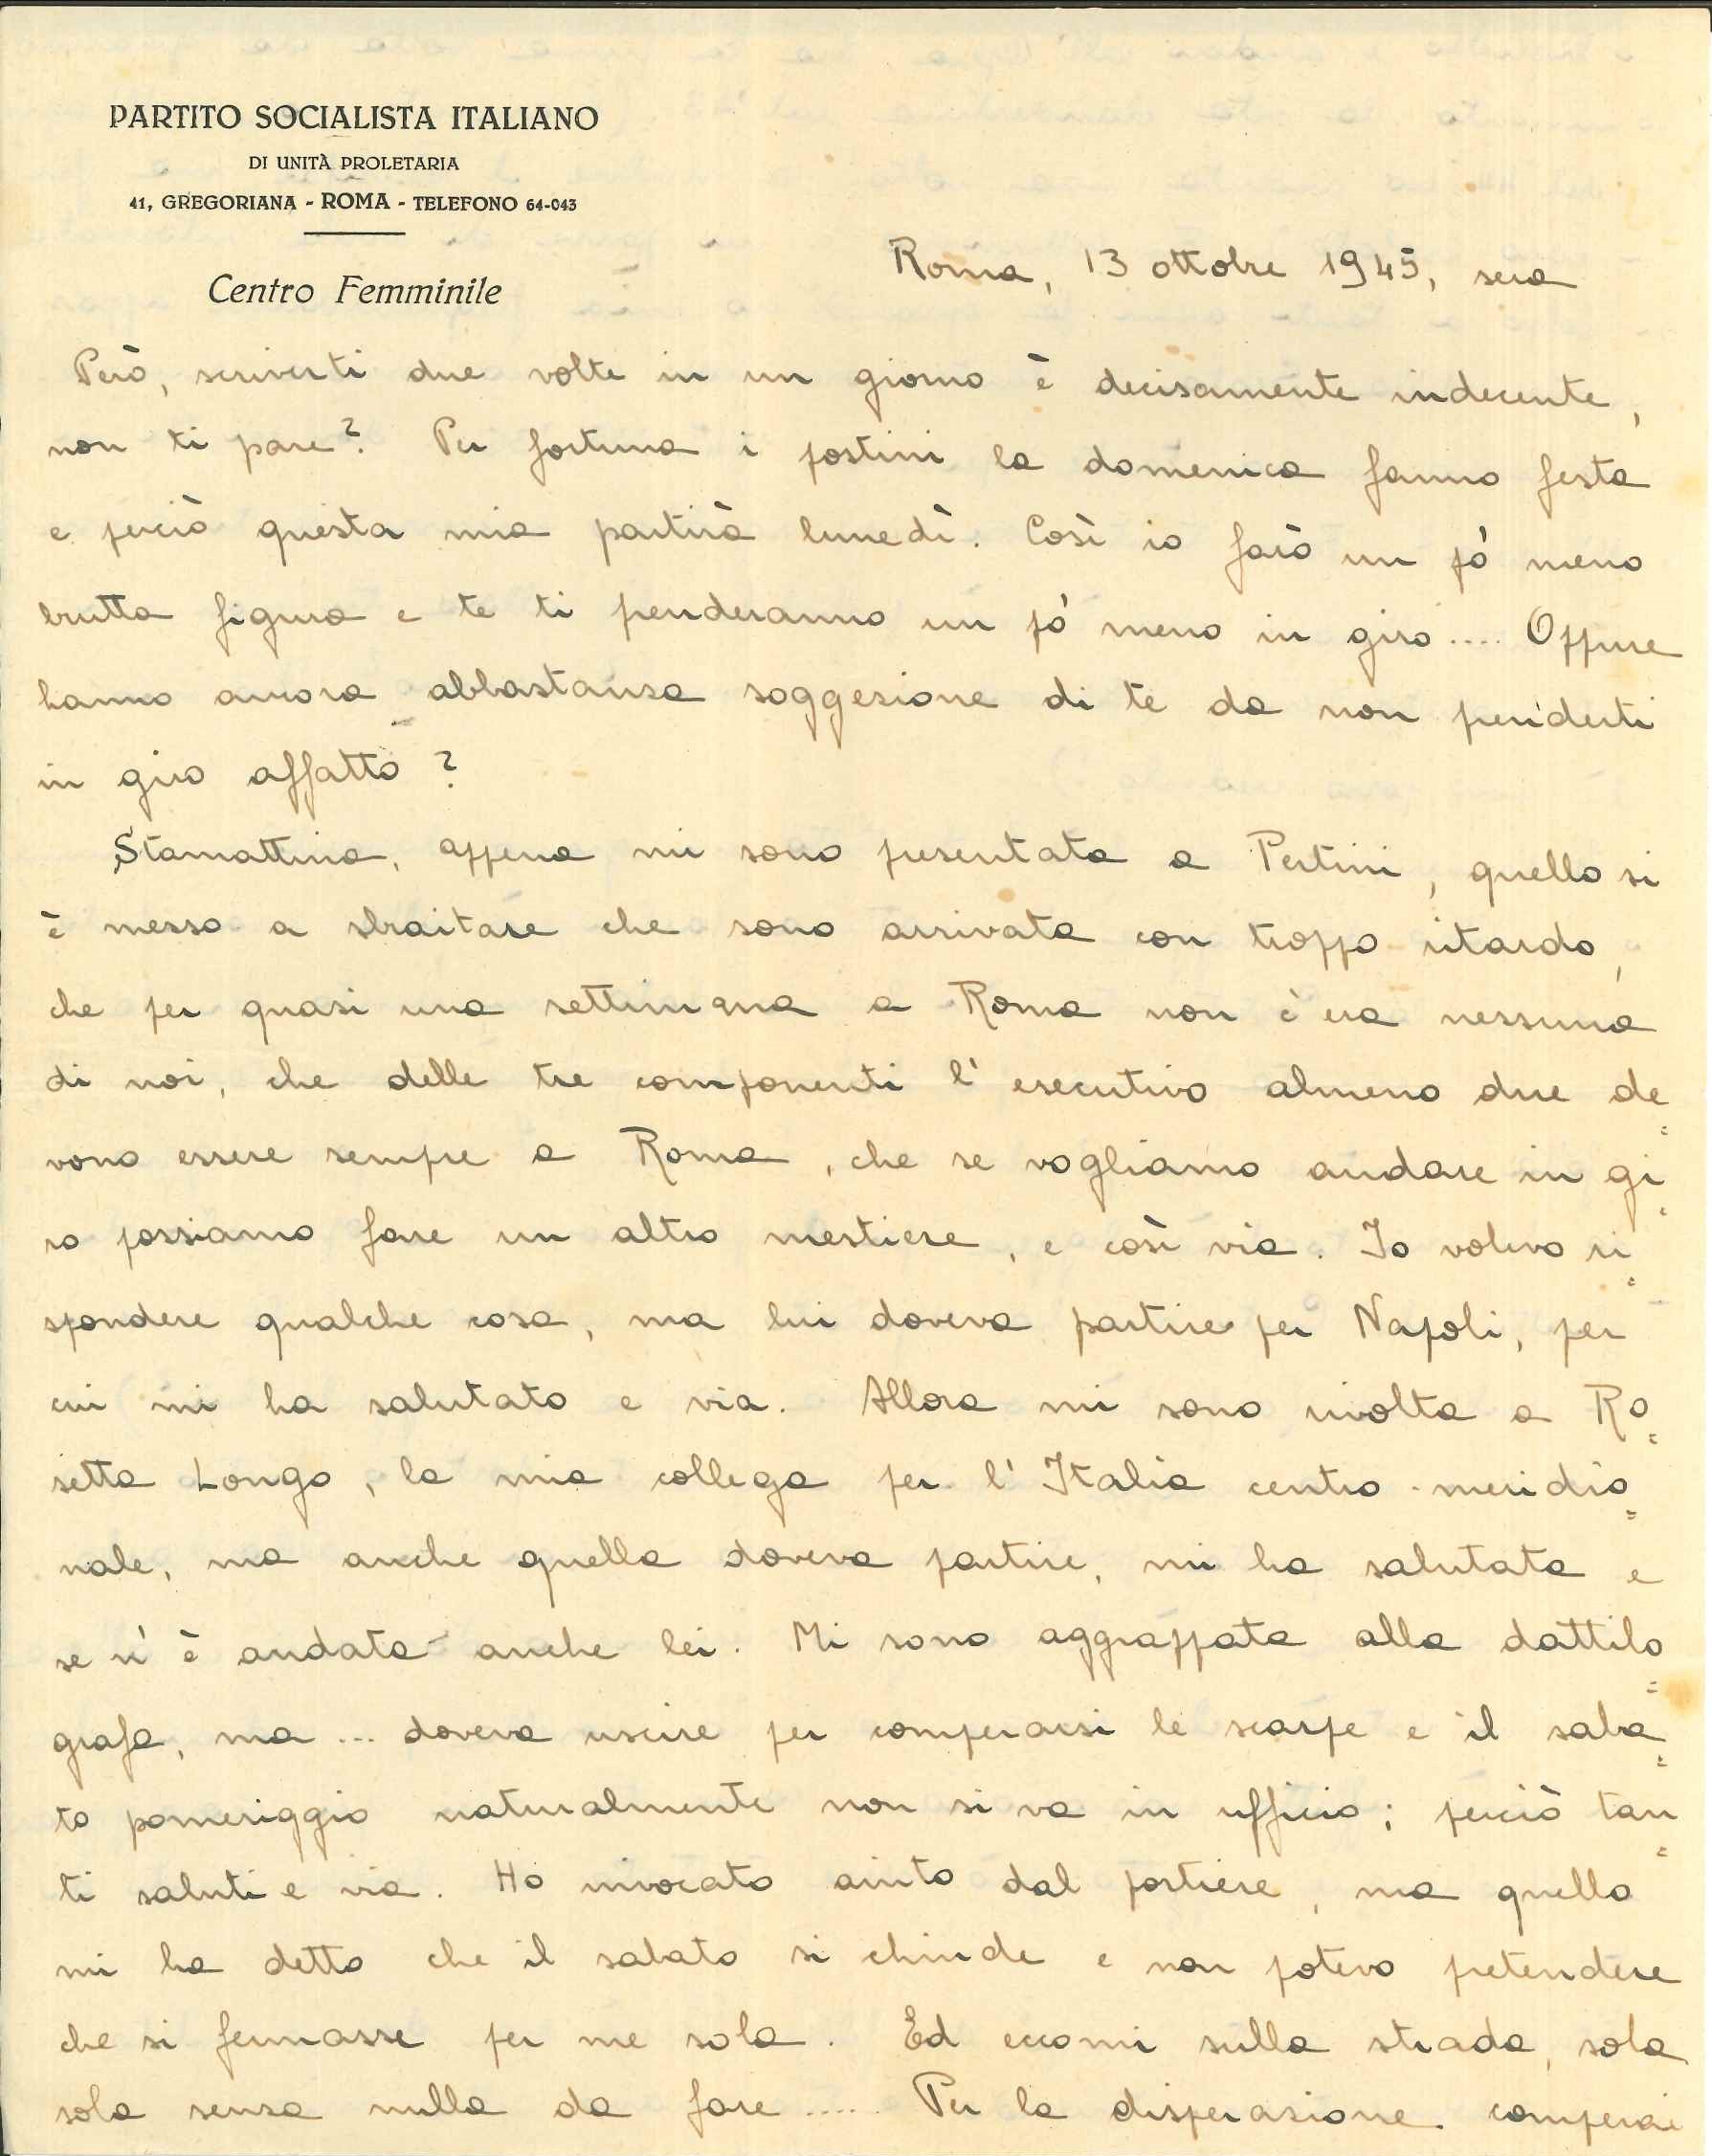 PARTITO SOCIALISTA ITALIANO
DI UNITÀ PROLETARIA
41, GREGORIANA - ROMA - TELEFONO 64-043
Centro Femminile
Roma, 13 ottobre 1945, sera
Però, scriverti due volte in un giorno è decisamente indecente,
non ti pare? Per fortuna i postini la domenica fanno festa
e perciò questa mia partirà lunedì. Così io farò un pò meno
brutta figura e te ti prenderanno un pò meno in giro .... Oppure
hanno ancora abbastanza soggezione di te da non prenderti
in giro affatto?
Stamattina, appena mi sono presentata a Pertini, quello si
è messo a sbraitare che sono arrivata con troppo ritardo,
che per quasi una settimana a Roma non c'era nessuna
di noi, che delle tre componenti l'esecutivo almeno due de=
vono essere sempre a Roma, che se vogliamo andare in gi=
ro possiamo fare un altro mestiere, e così via. Io volevo ri=
spondere qualche cosa, ma lui doveva partire per Napoli, per
cui mi ha salutato e via. Allora mi sono rivolta a Ro=
setta Longo, la mia collega per l'Italia centro-meridio=
nale, ma anche quella doveva partire, mi ha salutata e
se n'è andata anche lei. Mi sono aggrappata alla dattilo=
grafa, ma ... doveva uscire per comperarsi le scarpe e il saba=
to pomeriggio naturalmente non si va in ufficio; perciò tan=
ti saluti e via. Ho invocato aiuto dal portiere, ma quello
mi ha detto che il sabato si chiude e non potevo pretendere
che si fermasse per me sola. Ed eccomi sulla strada, sola
sola senza nulla da fare ..... Per la disperazione comperai